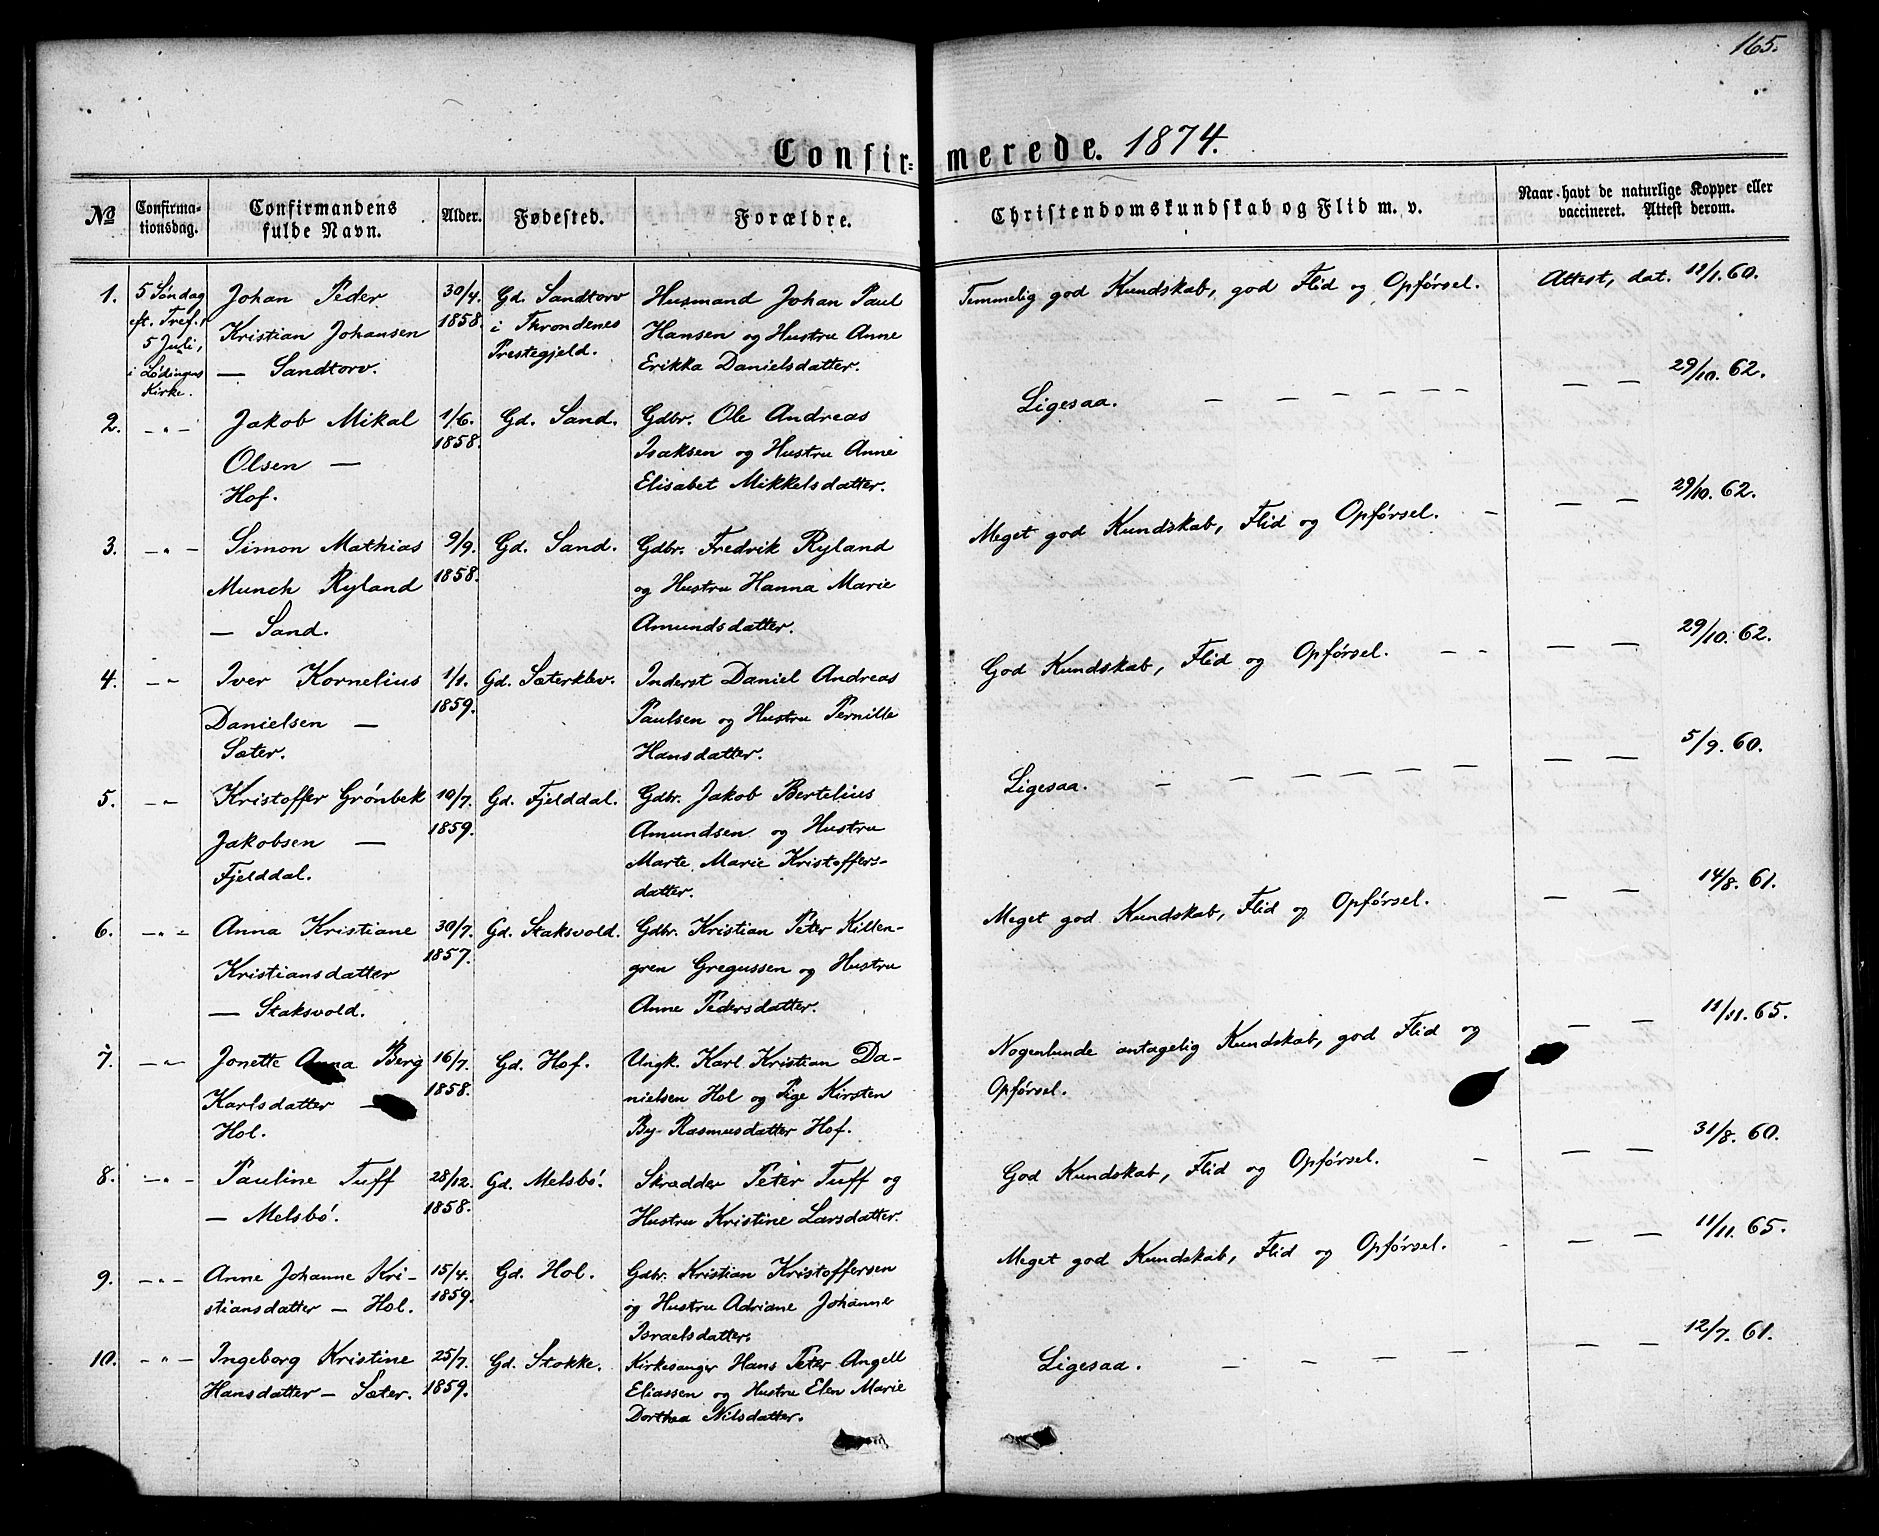 165.
Confir= merede. 1874.
No
Confirma-
tionsdag.
Confirmandens
fulde Navn.
Alder.
Fødested.
Forældre.
Christendomskundskab og Flid m. v.
Naar havt de naturlige Kopper eller
vaccineret. Attest derom.
1.
5 Søndag
eft. Tref.
5 Juli,
i Lødingens
Kirke.
Johan Peder
Kristian Johansen
— Sandtorv.
30/4.
1858.
Gd. Sandtorv
i Throndenes
Prestegjeld.
Husmand Johan Paul
Hansen og Hustru Anne
Erikka Danielsdatter.
Temmelig god Kundskab, god Flid og Opførsel.
Attest, dat. 11/1. 60.
2.
— " —
Jakob Mikal
Olsen —
Hof.
1/6.
1858.
Gd. Sand.
Gdbr. Ole Andreas
Isaksen og Hustru Anne
Elisabet Mikkelsdatter.
Ligesaa. — — — — — —
— — 29/10. 62.
3.
— " —
Simon Mathias
Munch Ryland
— Sand.
9/9.
1858.
Gd. Sand.
Gdbr. Fredrik Ryland
og Hustru Hanna Marie
Amundsdatter.
Meget god Kundskab, Flid og Opførsel. —
— — 29/10. 62.
4.
— " —
Iver Kornelius
Danielsen —
Sæter.
1/1.
1859.
Gd. Sæterklev.
Inderst Daniel Andreas
Paulsen og Hustru Pernille
Hansdatter.
God Kundskab, Flid og Opførsel. — —
— — 29/10. 62.
5.
— " —
Kristoffer Grønbek
Jakobsen —
Fjelddal.
10/7.
1859.
Gd. Fjelddal.
Gdbr. Jakob Bertelius
Amundsen og Hustru
Marte Marie Kristoffers-
datter.
Ligesaa. — — — — — —
— — 5/9. 60.
6.
— " —
Anna Kristiane
Kristiansdatter
— Staksvold.
30/7.
1857.
Gd. Staksvold.
Gdbr. Kristian Peter Killen-
gren Gregussen og Hustru
Anne Pedersdatter.
Meget god Kundskab, Flid og Opførsel.
— — 14/8. 61.
7.
— " —
Jonette Anna Berg
Karlsdatter —
Hol.
16/7.
1858.
Gd. Hof.
Ungk. Karl Kristian Da-
nielsen Hol og Pige Kirsten
By- Rasmusdatter Hof.
Nogenlunde antagelig Kundskab, god Flid og
Opførsel.
— — 11/11. 65.
8.
— " —
Pauline Tuff
— Melsbø.
28/12.
1858.
Gd. Melsbø.
Skrædder Peter Tuff og
Hustru Kristine Larsdatter.
God Kundskab, Flid og Opførsel. —
— — 31/8. 60.
9.
— " —
Anne Johanne Kri-
stiansdatter — Hol.
15/4.
1859.
Gd. Hol.
Gdbr. Kristian Kristoffersen
og Hustru Adriane Johanne
Israelsdatter.
Meget god Kundskab, Flid og Opførsel. —
— — 11/11. 65.
10.
— " —
Ingeborg Kristine
Hansdatter — Sæter.
25/7.
1859.
Gd. Stokke.
Kirkesanger Hans Peter Angell
Eliassen og Hustru Elen Marie
Dorthea Nilsdatter.
Ligesaa. — — — —
— — 12/7. 61.